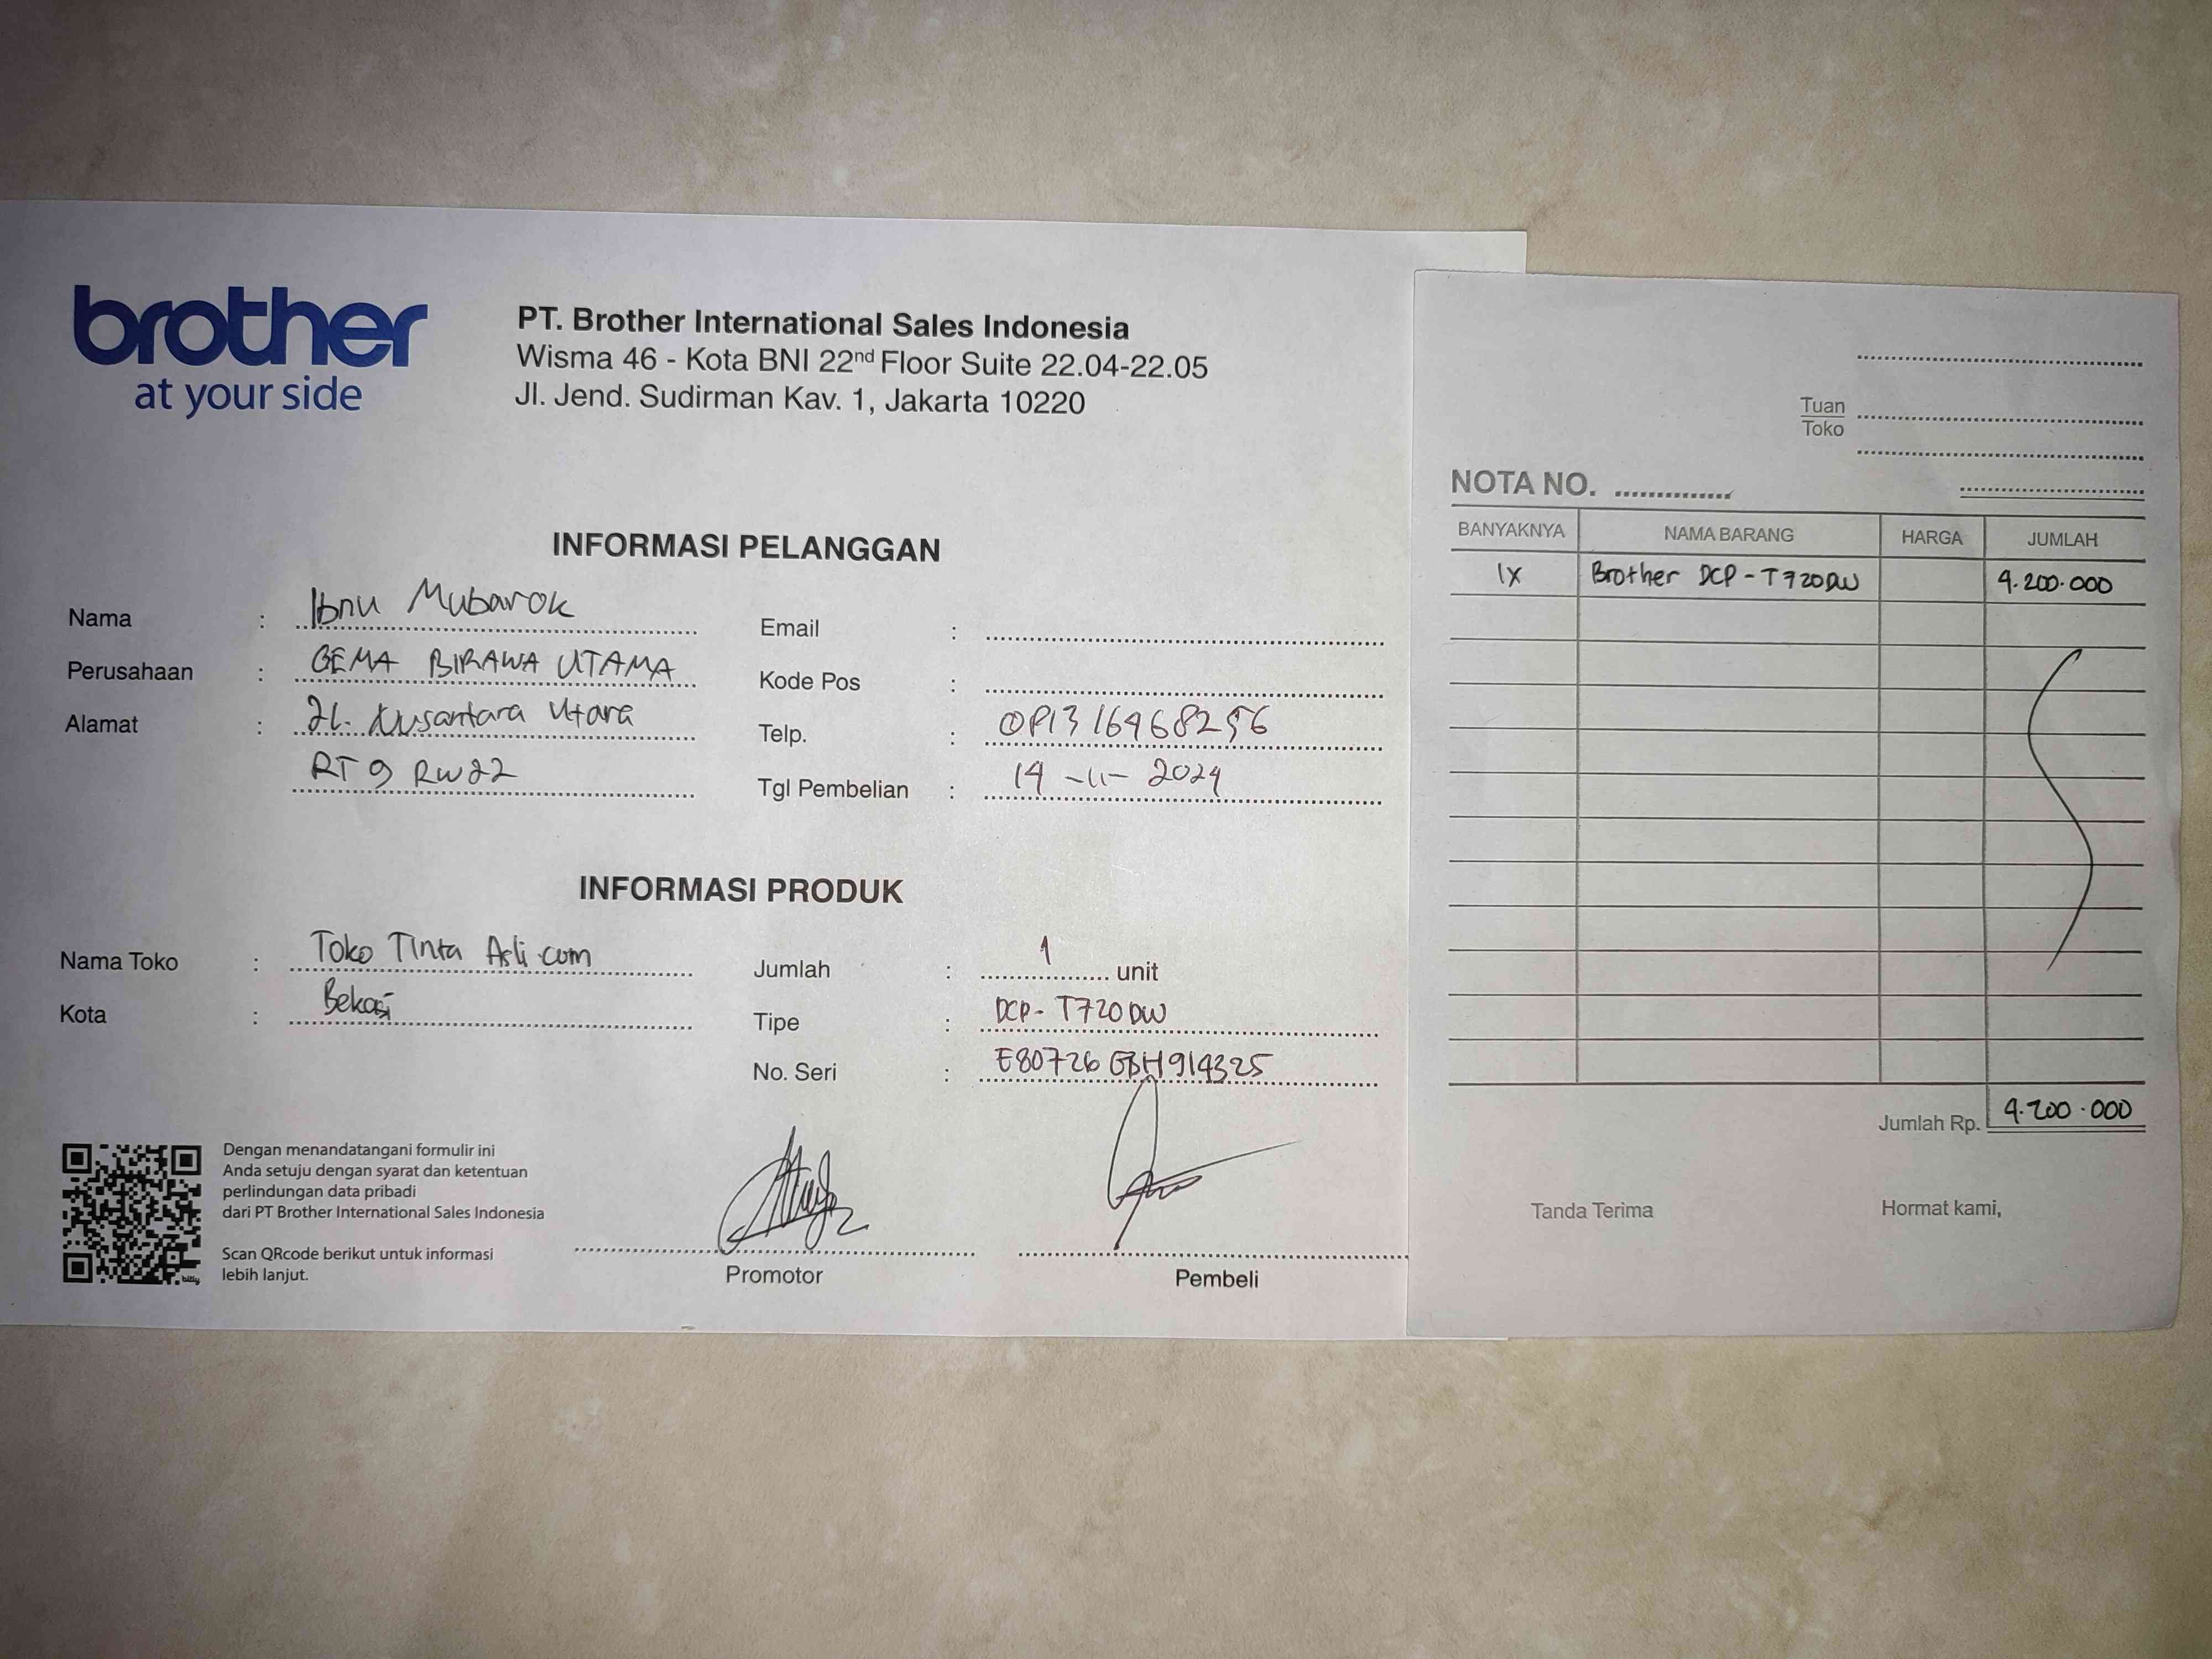 brother
at your side
PT. Brother International Sales Indonesia
Wisma 46 - Kota BNI 22nd Floor Suite 22.04-22.05
Jl. Jend. Sudirman Kav. 1, Jakarta 10220
INFORMASI PELANGGAN
Nama : Ibnu Mubarok
Perusahaan : GEMA BIRAWA UTAMA
Alamat : Jl. Nusantara Utara
RT 9 RW 22
Email :
Kode Pos :
Telp. :
Tgl Pembelian : 14 -11- 2024
INFORMASI PRODUK
Nama Toko : Toko Tinta Asli.com
Kota : Bekasi
Jumlah : 1 unit
Tipe : DCP- T720DW
No. Seri : E80726
Dengan menandatangani formulir ini
Anda setuju dengan syarat dan ketentuan
perlindungan data pribadi
dari PT Brother International Sales Indonesia
Scan QRcode berikut untuk informasi
lebih lanjut.
bitly
Promotor
Pembeli
Tuan
Toko
NOTA NO.
BANYAKNYA NAMA BARANG HARGA JUMLAH
1X Brother DCP - T720DW 4.200.000
Jumlah Rp. 4.200.000
Tanda Terima Hormat kami,